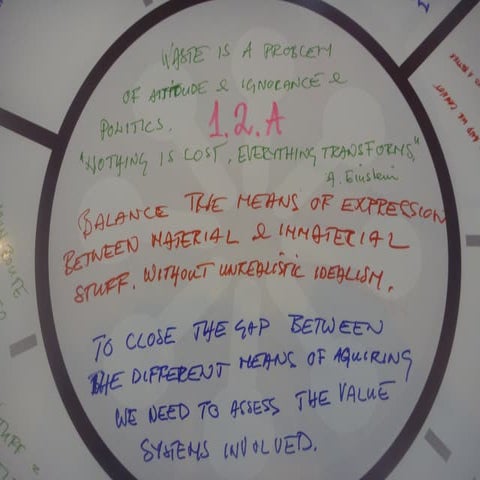 WASTE IS A PROBLEM
OF ATTITUDE & IGNORANCE &
POLITICS. 1.2.A
"NOTHING IS LOST, EVERYTHING TRANSFORMS,"
A. Einstein
BALANCE THE MEANS OF EXPRESSION
BETWEEN MATERIAL & IMMATERIAL
STUFF. WITHOUT UNREALISTIC IDEALISM.
TO CLOSE THE GAP BETWEEN
THE DIFFERENT MEANS OF AQUIRING
WE NEED TO ASSESS THE VALUE
SYSTEMS INVOLVED.